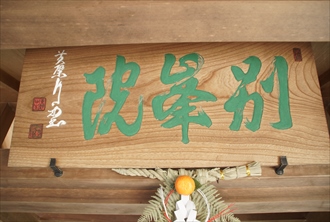 別峯院